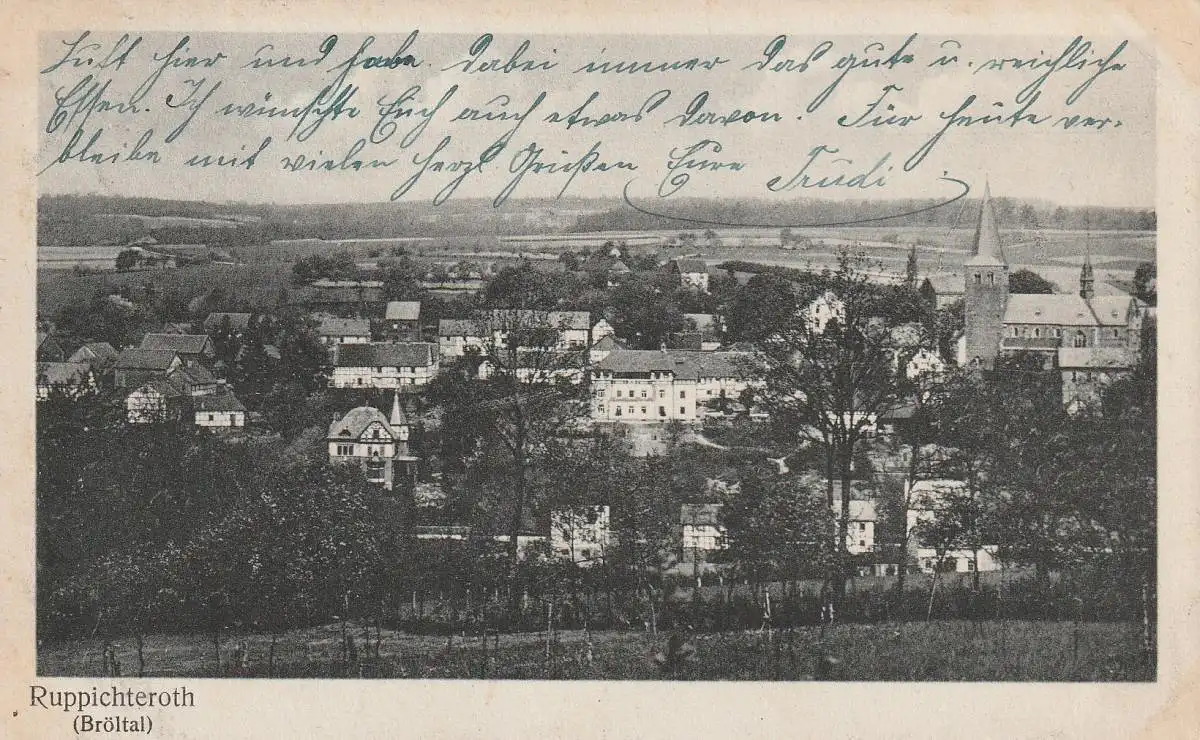 Luft hier und habe dabei immer das gute u. reichliche
Essen. Ich wünschte Euch auch etwas davon. Für heute ver-
bleibe mit vielen herzl. Grüßen Eure Trudi
Ruppichteroth
(Bröltal)